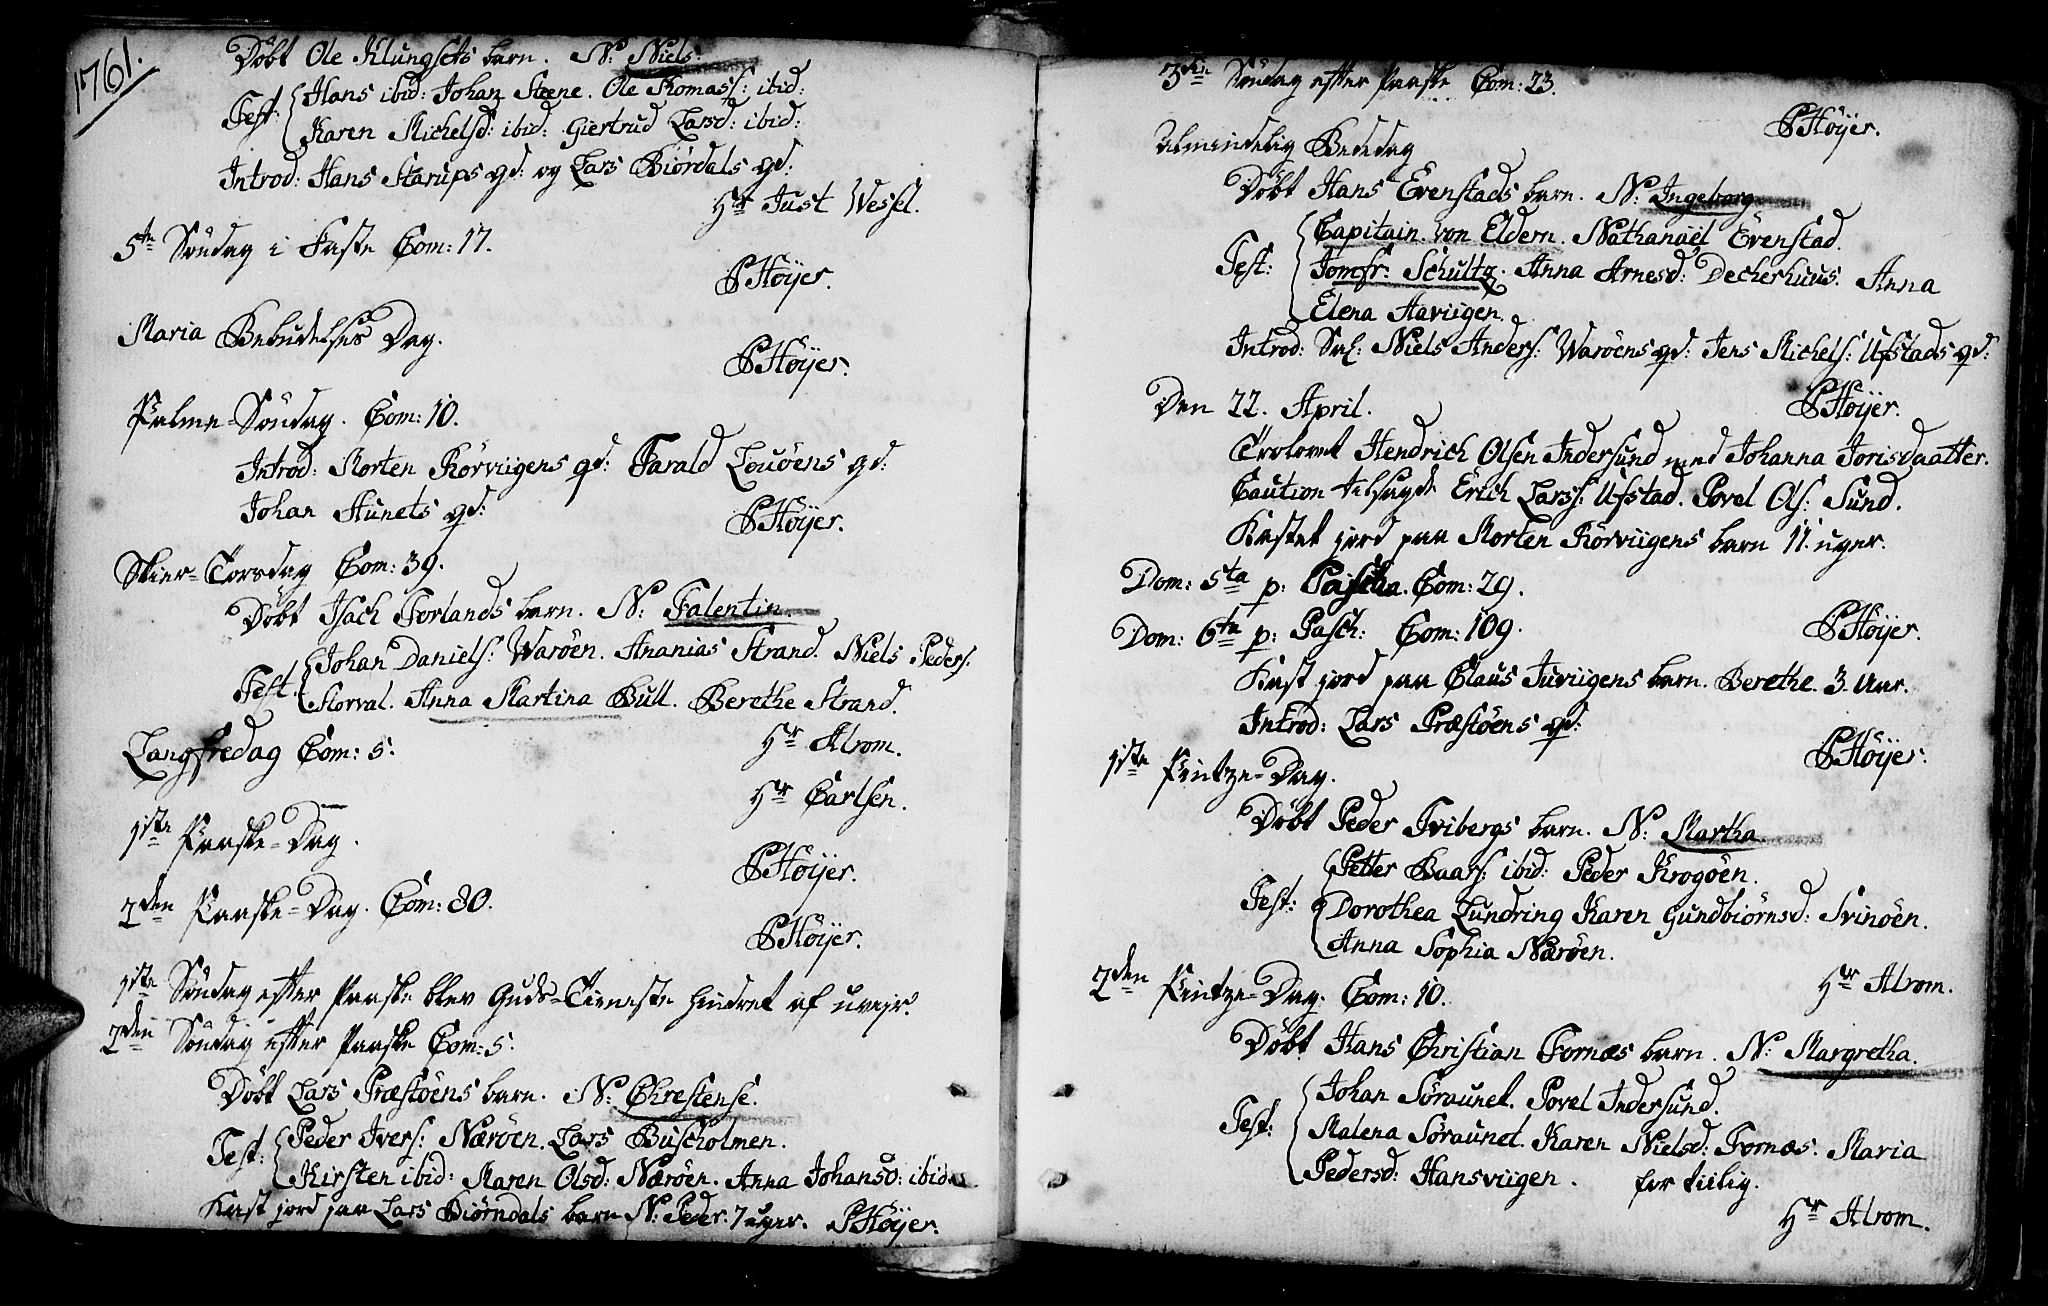 1761.
Döbt Ole Klungsets barn. N: Niels.
Test: Hans ibid: Johan Steene. Ole Thomass: ibid:
Karen Michelsd: ibid: Giertrud Larsd: ibid:
Introd: Hans Starups qd: og Lars Biördals qd:
Hr Just Wessel.
5te Söndag i Faste Com: 17.
PHöyer.
Maria Bebudelses Dag.
PHöyer.
Palme-Söndag. Com: 10.
Introd: Morten Rörviigens qd: Farald Louöens qd:
Johan Hunets qd:
PHöyer.
Skier-Torsdag Com: 39.
Döbt Isach Forlands barn. N: Falentin.
Test: Johan Daniels: Waröen. Ananias Strand. Niels Peders:
Horval. Anna Martina Bull. Berethe Strand.
Hr Alrom.
Langfredag Com: 5.
Hr Carlsen.
1ste Paaske-Dag.
PHöyer.
2den Paaske-Dag. Com: 80.
PHöyer.
1ste Söndag efter Paaske blev Guds-Tieneste hindret af uvejr.
2den Söndag efter Paaske Com: 5.
Döbt Lars Præstöens barn. N: Chrestense.
Test: Peder Ivers: Næröen. Lars Buscholmen.
Kirsten ibid: Maren Olsd: Næröen. Anna Johansd: ibid.
Kast jord paa Lars Biörndals barn N: Peder. 7 uger. PHöyer.
3die Söndag efter Paaske Com: 23.
PHöyer.
Almindelig Bededag
Döbt Hans Evenstads barn. N: Ingeborg
Test: Capitain von Eldern. Nathanaël Evenstad.
Jomfr: Schultz. Anna Arnesd: Deckerhuus. Anna
Elena Haviigen.
Introd: Snl: Niels Anders: Waröens qd: Jens Michels: Ufstads qd:
PHöyer.
Den 22. April.
Trolovet Hendrich Olsen Indersund med Johanna Jorisdaatter.
Caution tilsagde Erich Larss: Ufstad. Povel Ols: Sund.
Kastet jord paa Morten Rörviigens barn 11. uger.
Dom: 5ta p: Pascha. Com: 29.
PHöyer.
Dom: 6ta p: Pasch: Com: 109.
Kast jord paa Claus Juviigens barn. Berethe. 3. Aar.
Introd: Lars Præstöens qd:
PHöyer.
1ste Pintze-Dag.
Döbt Peder Fribergs barn. N: Martha.
Test: Petter Baars: ibid: Peder Krogöen.
Dorothea Lundring Karen Gundbiörnsd: Svinöen.
Anna Sophia Næröen.
Hr Alrom.
2den Pintze-Dag. Com: 10.
Döbt Hans Christian Fornæs barn. N: Margretha.
Test: Johan Söraunet. Povel Indersund.
Malena Söraunet. Karen Nielsd: Fornæs. Maria
Pedersd: Hansviigen. for tiilig.
Hr Alrom.